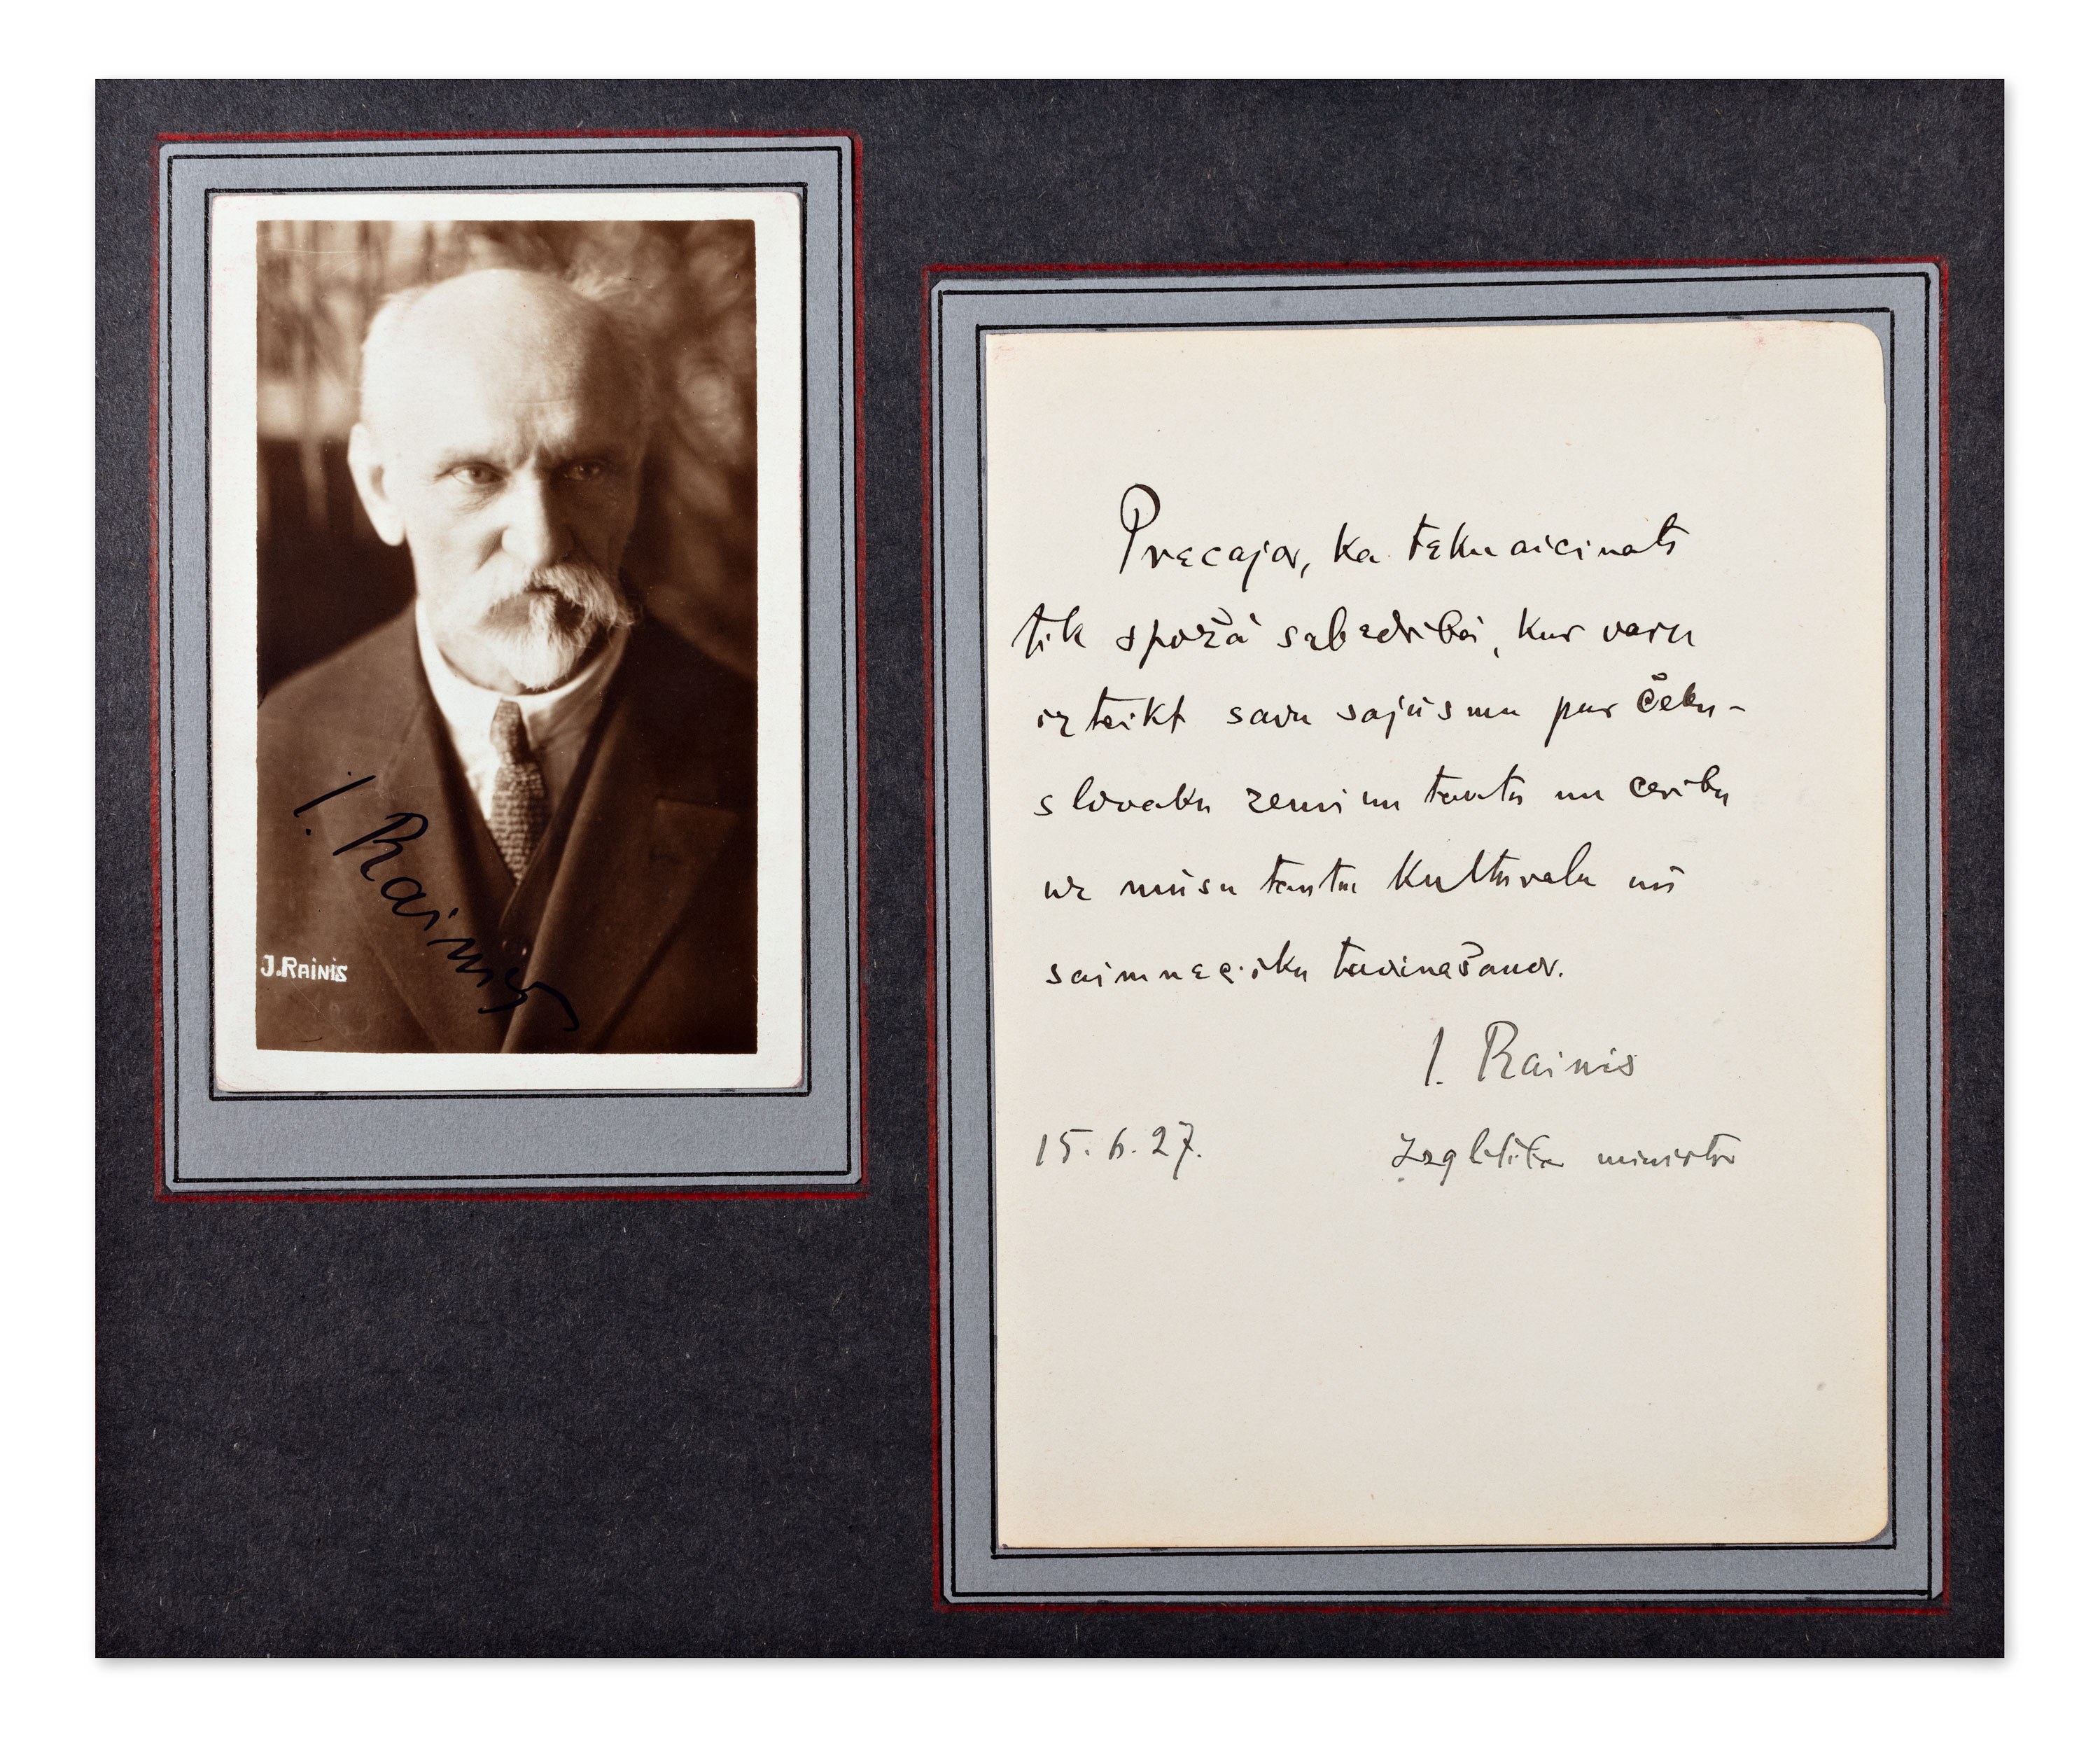 J. Rainis
J.RAINIS
Precajos, ka teku aicinats
tik spožā sabedribā, kur varu
izteikt savu sajūsmu par čeku-
slovaku zemi un tautu un ceribu
uz mūsu tautu kulturalu un
saimnecisku tuvinašanos.
J. Rainis
15.6.27. Izglitibas ministrs